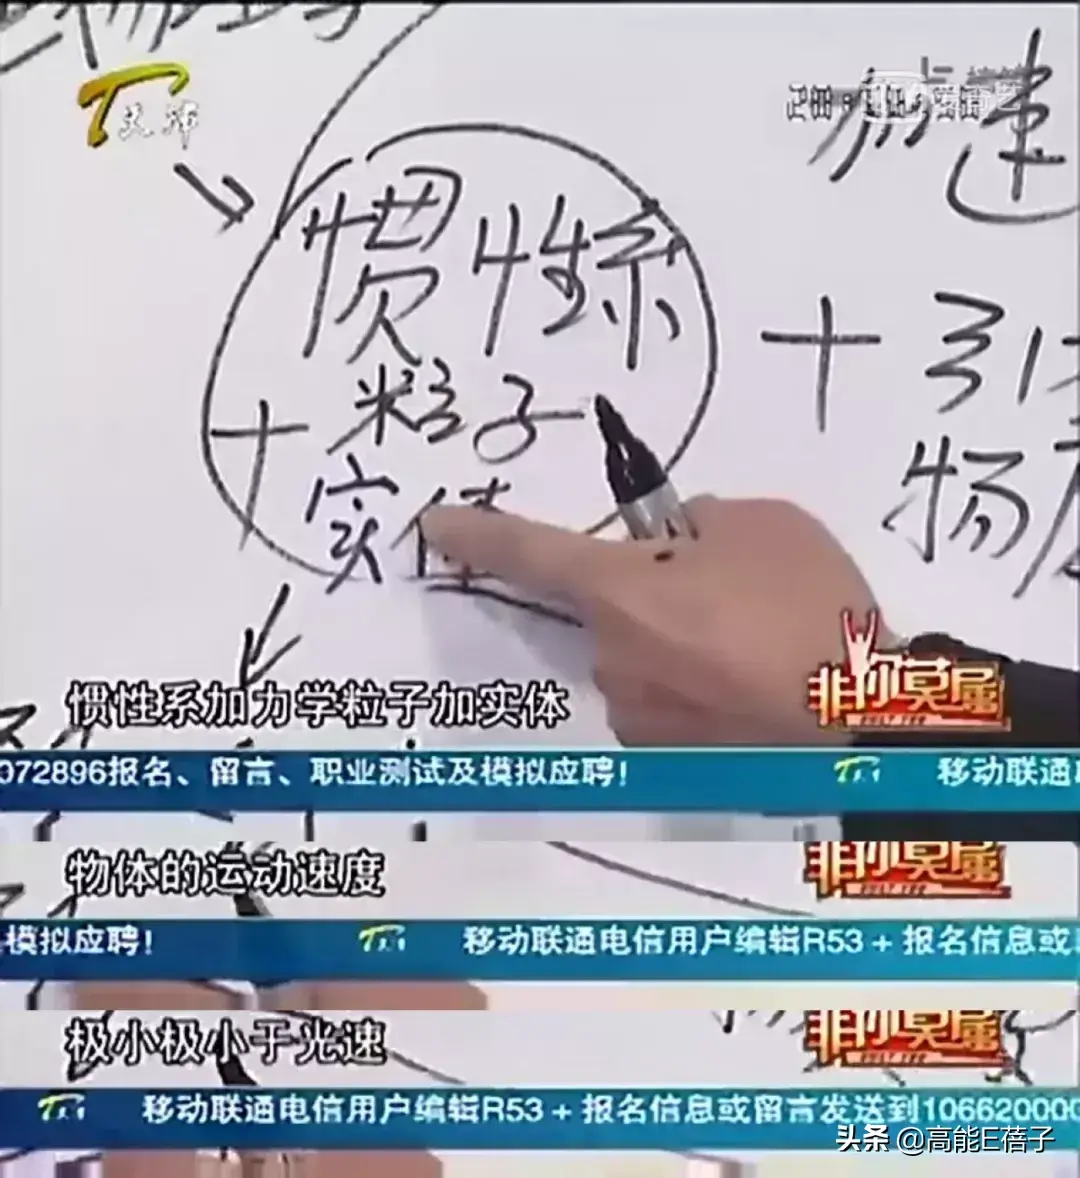 天津
爱奇艺
加速
惯性系
粒子
+
实体
+引
物质
惯性系加力学粒子加实体
非你莫属
072896报名、留言、职业测试及模拟应聘!
移动联通
物体的运动速度
非你莫属
模拟应聘!
移动联通电信用户编辑R53+报名信息或
极小极小于光速
非你莫属
移动联通电信用户编辑R53+报名信息或留言发送到106620000
头条 @高能E蓓子